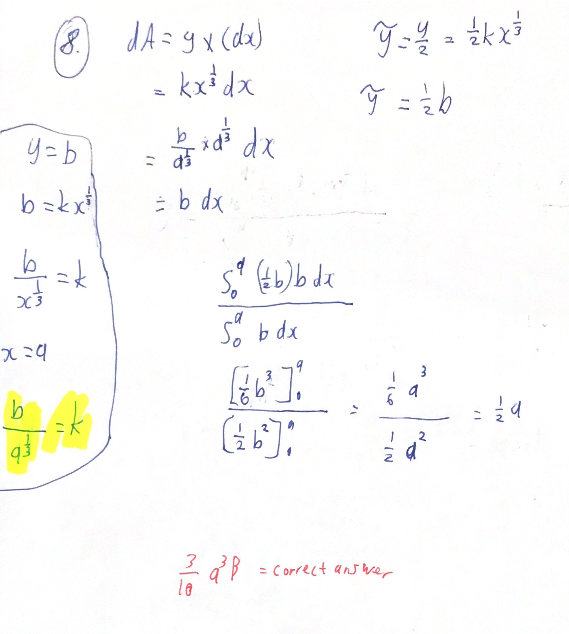 8.
dA = y x (dx)
= kx^{1/3} dx
= b/a^{1/3} x a^{1/3} dx
= b dx
ỹ = y/2 = 1/2 kx^{1/3}
ỹ = 1/2 b
y = b
b = kx^{1/3}
b/x^{1/3} = k
x = a
b/a^{1/3} = k
∫_0^a (1/2 b) b dx / ∫_0^a b dx
[1/6 b^3]_0^a / (1/2 b^2]_0^a = 1/6 a^3 / 1/2 a^2 = 1/2 a
3/10 a^3 β = correct answer